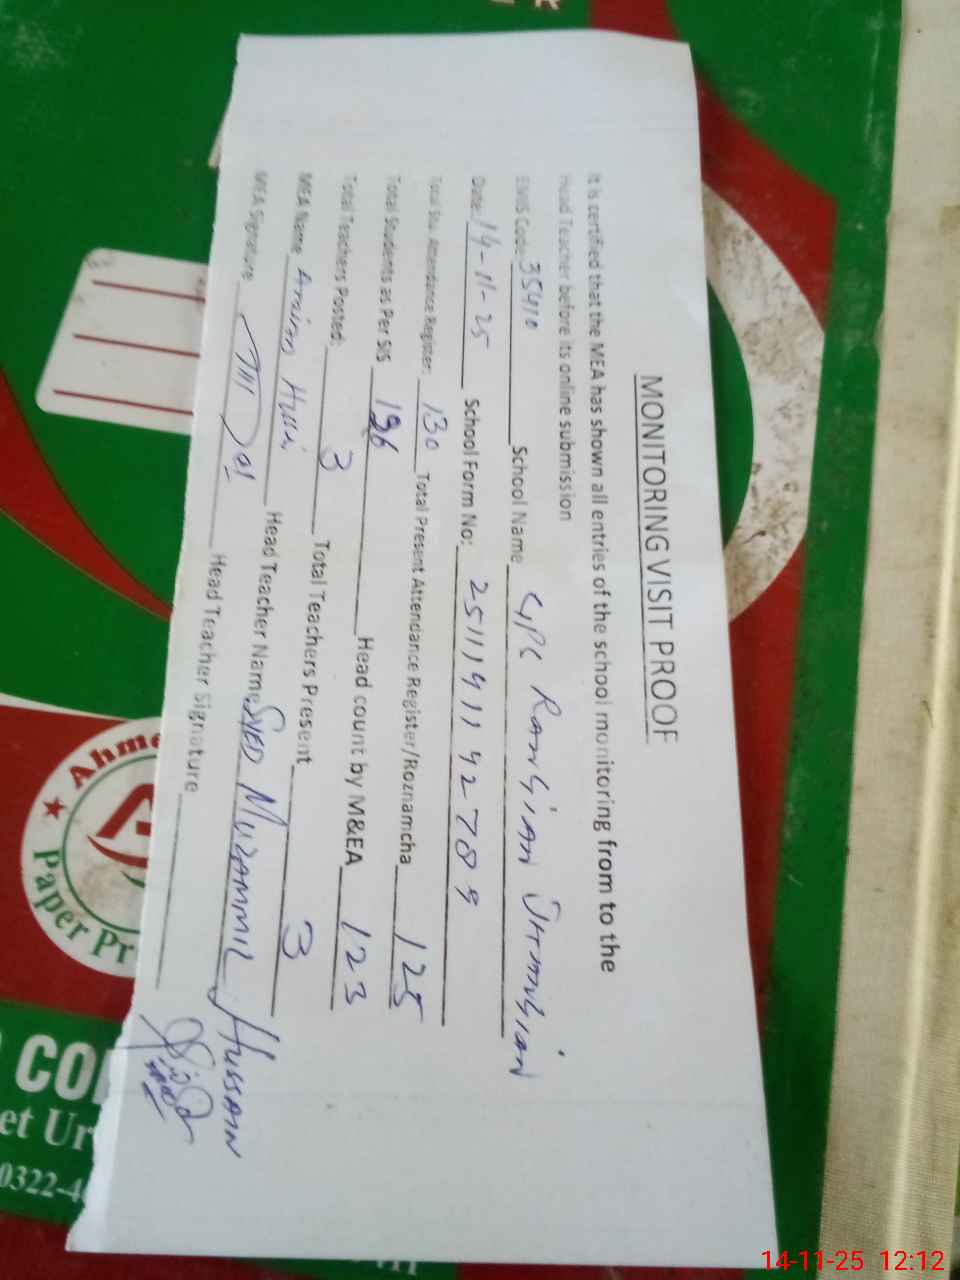 MONITORING VISIT PROOF
It is certified that the MEA has shown all entries of the school monitoring from to the
Head Teacher before its online submission
EMIS Code: 35410 School Name GPS
Date: 14-11-25 School Form No:
Total Stu. Attendance Register: 130 Total Present Attendance Register/Roznamcha 125
Total Students as Per SIS Head count by M&EA 123
Total Teachers Posted: 3 Total Teachers Present 3
MEA Name Head Teacher Name SYED MUZAMMIL HUSSAIN
MEA Signature Head Teacher Signature
Ahme
Paper Pr
CO
et Ur
0322-4
14-11-25 12:12